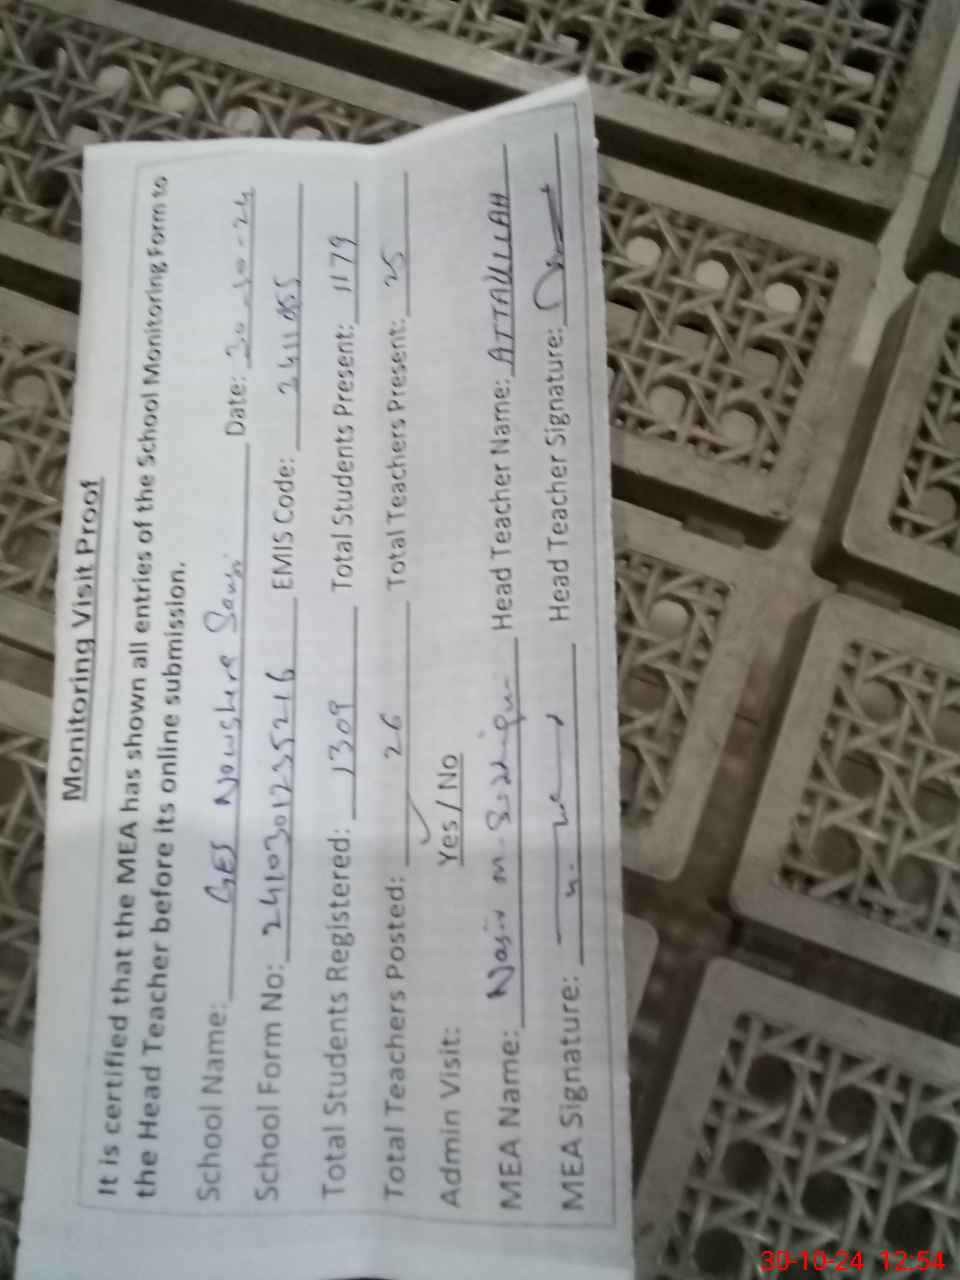 Monitoring Visit Proof
It is certified that the MEA has shown all entries of the School Monitoring Form to
the Head Teacher before its online submission.
School Name: GES Nowshera Date: 30-10-24
School Form No: 2410301235216 EMIS Code:
Total Students Registered: 1309 Total Students Present: 1179
Total Teachers Posted: 26 Total Teachers Present: 25
Admin Visit: Yes / No
MEA Name: Nasir M. Head Teacher Name: ATTAULLAH
MEA Signature: Head Teacher Signature:
30-10-24 12:54